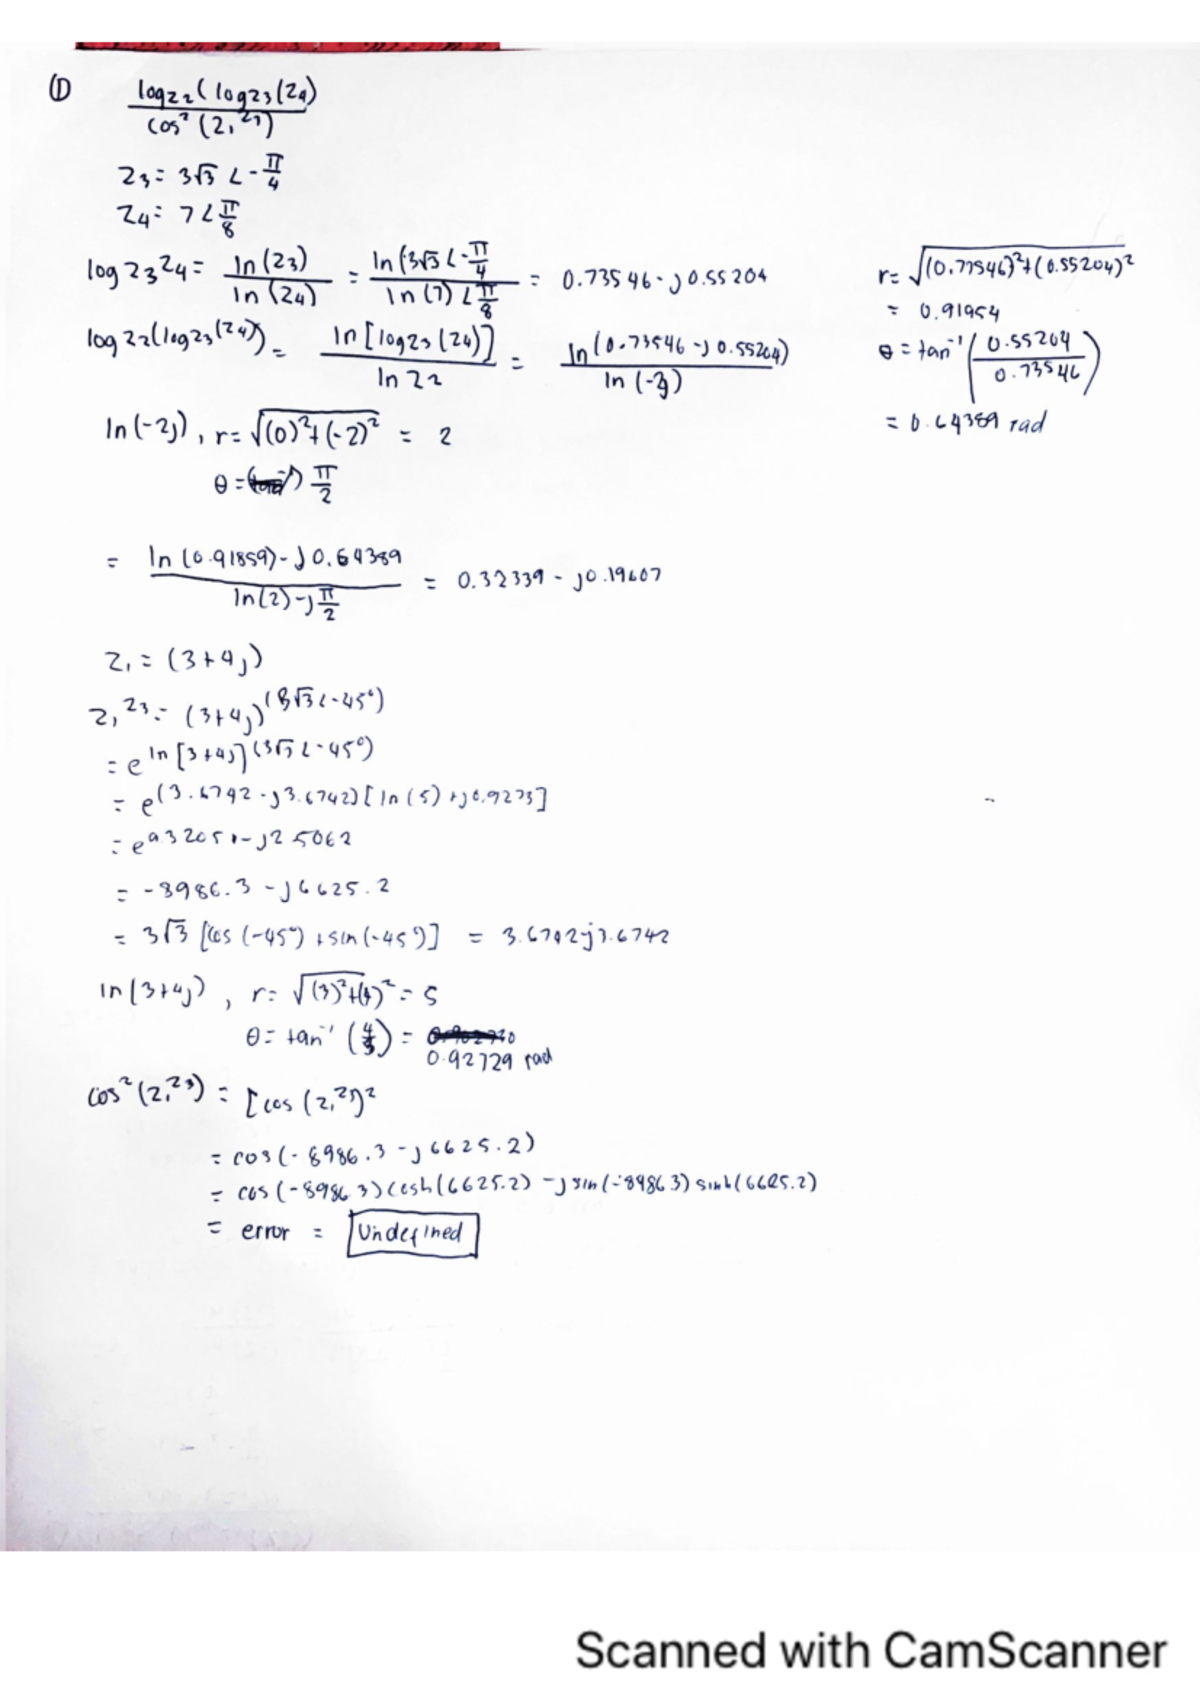 ① log z₂ (log z₃ (z₄)
cos² (z₁^z₃)
z₃ = 3√3 ∠ -π/4
z₄ = 7 ∠ π/8
log z₃ z₄ = ln (z₃) / ln (z₄) = ln (3√3 ∠ -π/4 / ln (7) ∠ π/8 = 0.73546 - j0.55204
r = √(0.73546)² + (0.55204)²
= 0.91954
log z₂ (log z₃ (z₄)) = ln [log z₃ (z₄)] / ln z₂ = ln (0.73546 - j 0.55204) / ln (-2j)
θ = tan⁻¹ (0.55204 / 0.73546)
= 0.64389 rad
ln (-2j), r = √(0)² + (-2)² = 2
θ = π/2
= ln (0.91859) - j0.64389 / ln (2) - j π/2 = 0.32339 - j0.19607
z₁ = (3+4j)
z₁^z₃ = (3+4j)^(3√3 ∠ -45°)
= e^ln [3+4j] (3√3 ∠ -45°)
= e^(3.6742 - j3.6742) [ln (5) + j0.9273]
= e^9.32051 - j2.5062
= -8986.3 - j6625.2
= 3√3 [cos (-45°) + sin (-45°)] = 3.6742 - j3.6742
ln (3+4j), r = √(3)² + (4)² = 5
θ = tan⁻¹ (4/3) =
0.92729 rad
cos² (z₁^z₃) = [cos (z₁^z₃)²
= cos (-8986.3 - j6625.2)
= cos (-8986.3) cosh (6625.2) - j sin (-8986.3) sinh (6625.2)
= error = Undefined
Scanned with CamScanner